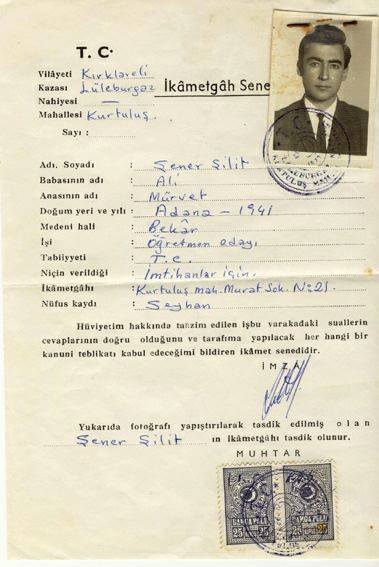 T. C.
Vilâyeti Kırklareli
Kazası Lüleburgaz
İkâmetgâh Sene
Nahiyesi —
Mahallesi Kurtuluş.
Sayı :
Adı, Soyadı : Şener Şilit
Babasının adı : Ali
Anasının adı : Mürvet
Doğum yeri ve yılı : Adana – 1941
Medeni hali : Bekâr
İşi : Öğretmen adayı
Tabiiyyeti : T.C.
Niçin verildiği : İmtihanlar için.
İkâmetgâhı : Kurtuluş mah. Murat Sok. N: 21.
Nüfus kaydı : Seyhan
Hüviyetim hakkında tanzim edilen işbu varakadaki suallerin
cevaplarının doğru olduğunu ve tarafıma yapılacak her hangi bir
kanuni teblikatı kabul edeceğimi bildiren ikâmet senedidir.
İMZA
Yukarıda fotoğrafı yapıştırılarak tasdik edilmiş olan
Şener Şilit ın ikâmetgâhı tasdik olunur.
MUHTAR
DAMGA PULU DAMGA PULU
25 25 25 25